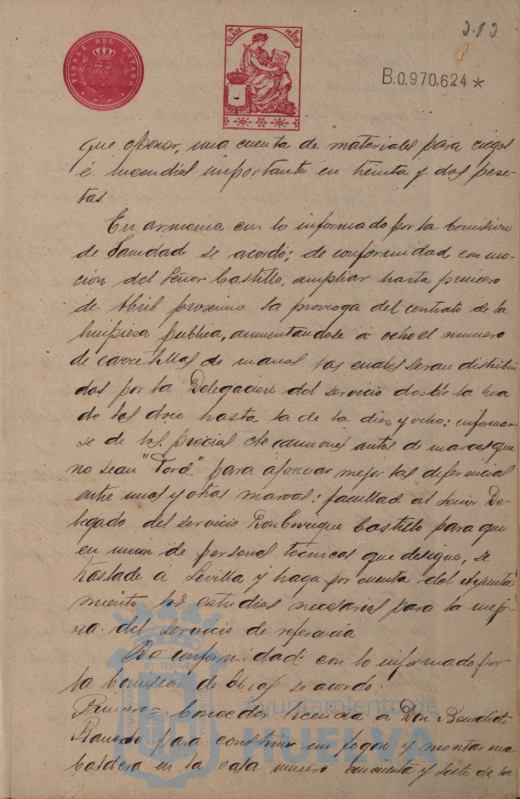 TIMBRE DEL ESTADO
CLASE 8ª
B.0.970,624*
que oponer, una cuenta de materiales para riegos
é incendios importante en treinta y dos pese-
tas
En armonia con lo informado por la Comision
de Sanidad se acordó; de conformidad con mo-
cion del Señor Castillo, ampliar hasta primero
de Abril proximo la prorroga del contrato de la
limpieza publica, aumentandose a ocho el numero
de carretillas de manos las cuales seran distribui
das por la Delegacion del servicio desde la hora
de las doce hasta la de la diez y ocho; informar-
se de los precios de camiones autos de marcas que
no sean "Ford" para apreciar mejor las diferencias
entre unas y otras marcas; facultar al Señor De-
legado del servicio Don Enrique Castillo para que
en union de personas tecnicas que designe, se
traslade a Sevilla y haga por cuenta del Ayunta
miento los estudios necesarios para la mejo-
ra del servicio de referencia
De conformidad con lo informado por
la Comision de se acordo:
Primero = Conceder licencia a Don
para construir un fogon y montar una
caldera en la casa numero cincuenta y siete de la
Ayuntamiento de
HUELVA